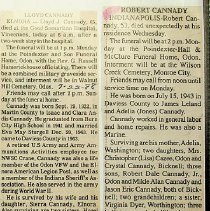 LLOYD CANNADY
ELNORA — Lloyd J. Cannady, 65,
died at the Good Samaritan Hospital,
Vincennes, today at 8:30 p.m. after a
two-week stay in the hospital.
The funeral will be at 1 p.m. Monday
at the Poindexter and Son Funeral
Home, Odon, with the Rev. G. Russell
Harnersheck officiating. There will
be a combined military graveside ser-
vice, and interment will be in Walnut
Hill Cemetery, Odon.
Friends may call from
Cannady was born Sept. 18, 1922, in
Martin County to Isaac and Clara An-
dis Cannady. He graduated from Burns
City High School in 1941, and married
Eva May Stangel Dec. 20, 1943. He
came to Daviess County in 1965.
A retired US Army and Army Am-
munitions Activities employee for
NWSC Crane, Cannady was also a life
member of the Odon VFW and the El-
nora American Legion Post, as well as
a member of the Indiana Sheriff's As-
sociation. He also served in the army
during World War II.
He is survived by his wife and his
daughter, Sierra Cannady, Elnora
ROBERT CANNADY
INDIANAPOLIS-Robert Can-
nady, 51, died unexpectedly at his
residence Wednesday.
The funeral will be at 2 p.m. Mon-
day at the Poindexter-Hall &
McClure Funeral Home, Odon.
Interment will be at the Wilson
Creek Cemetery, Monroe City.
Friends may call from noon until
service time on Monday.
He was born on July 15, 1943 in
Daviess County to James Leland
and Adelia (Jones) Cannady.
Cannady worked in general labor
and home repairs. He was also a
Marine.
Surviving are his mother, Adelia,
Washington; two daughters, Ms.
Christopher (Lisa) Casee, Odon and
Crystal Cannady, Bicknell; three
sons, Robert Dale Cannady Jr.,
Odon and Wilde Alan Cannady and
Jason Eric Cannady, both of Bick-
nell; two grandchildren; a sister,
Virginia Dyer, Worthington; three